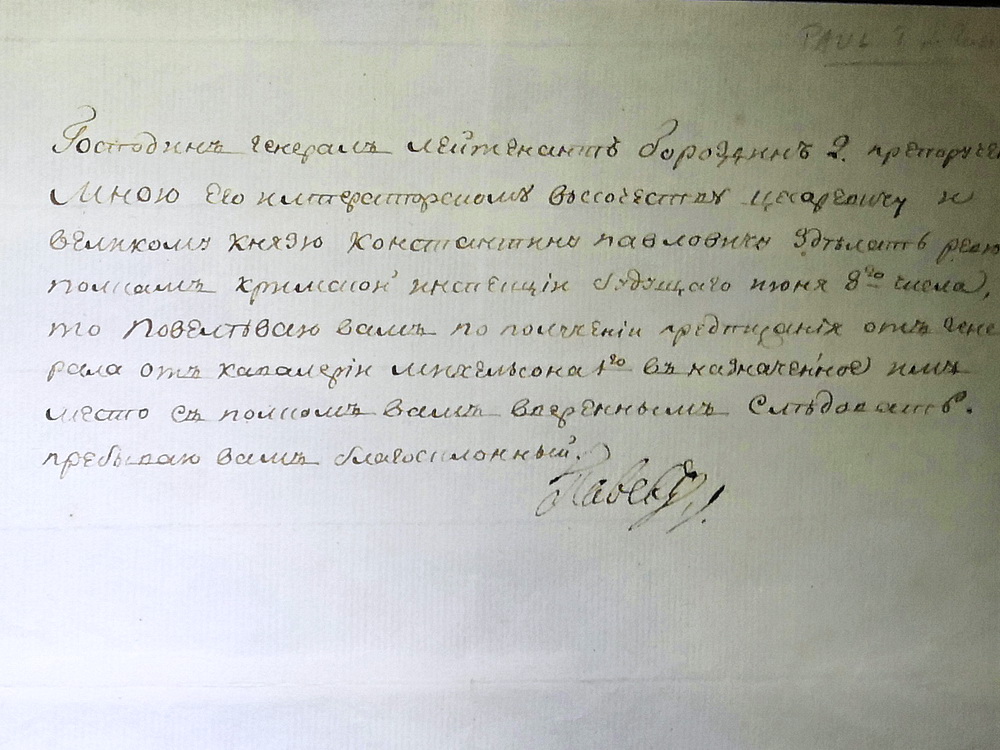 PAUL I
Господинъ генералъ лейтенантъ Бороздинъ 2. препоруче
Мною Его императорскому высочеству цесаревичу и
великому князю Константину павловичу Здѣлать
полкамъ крымской инспекціи будущаго июня 8го числа,
то Повелѣваю вамъ по полученіи предписанія отъ гене
рала отъ кавалеріи Михельсона 1го въ назначенное имъ
место съ полкомъ вамъ ввереннымъ Слѣдовать.
пребываю вамъ благосклонный.
Павелъ